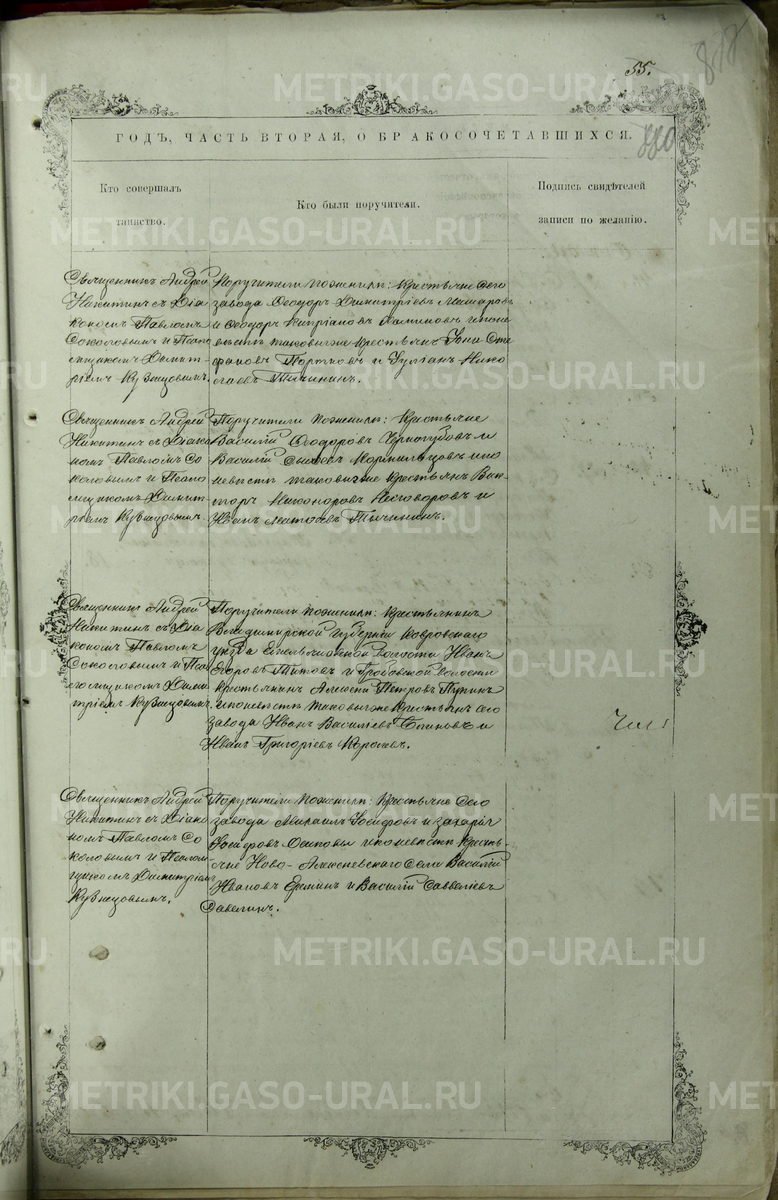 55.
ГОДЪ, ЧАСТЬ ВТОРАЯ, О БРАКОСОЧЕТАВШИХСЯ.
Кто совершалъ
таинство.
Кто были поручители.
Подпись свидѣтелей
записи по желанію.
Священникъ Андрей
Никитинъ съ Діа
кономъ Павломъ
Соколовымъ и Псало
мщикомъ Димит
ріемъ Кузнецовымъ.
Поручители по женихѣ: Крестьяне сего
завода Ѳеодоръ Димитріевъ
и Ѳеодоръ Кипріановъ и по не
вѣстѣ таковые же крестьяне Іона Сте
фановъ и Іуліанъ Нико
лаевъ Тичининъ.
Священникъ Андрей
Никитинъ съ Діако
номъ Павломъ Со
коловымъ и Псало
мщикомъ Димит
ріемъ Кузнецовымъ.
Поручители по женихѣ: Крестьяне
Василій Ѳеодоровъ и
Василій и по
невѣстѣ таковые же крестьяне Вик-
торъ Никоноровъ и
Иванъ Тичининъ.
Священникъ Андрей
Никитинъ съ Діа
кономъ Павломъ
Соколовымъ и Пса
ломщикомъ Дими
тріемъ Кузнецовымъ.
Поручители по женихѣ: крестьянинъ
Владимирской Губерніи Ковровскаго
уѣзда волости Иванъ
Егоровъ Титовъ и Гробовской волости
крестьянинъ Алексѣй Петровъ
и по невѣстѣ таковые же крестьяне сего
завода Иванъ Василіевъ Блиновъ и
Иванъ Григоріевъ Королевъ.
Священникъ Андрей
Никитинъ съ Діако
номъ Павломъ Со
коловымъ и Псалом
щикомъ Димитріемъ
Кузнецовымъ.
Поручители по женихѣ: Крестьяне сего
завода Михаилъ Іосифовъ и Захарій
Іосифовъ Осиповы и по невѣстѣ кресть-
яне Ново-Алексѣевскаго села Василій
Ивановъ и Василій Савеліевъ
Савелинъ.
METRIKI.GASO-URAL.RU